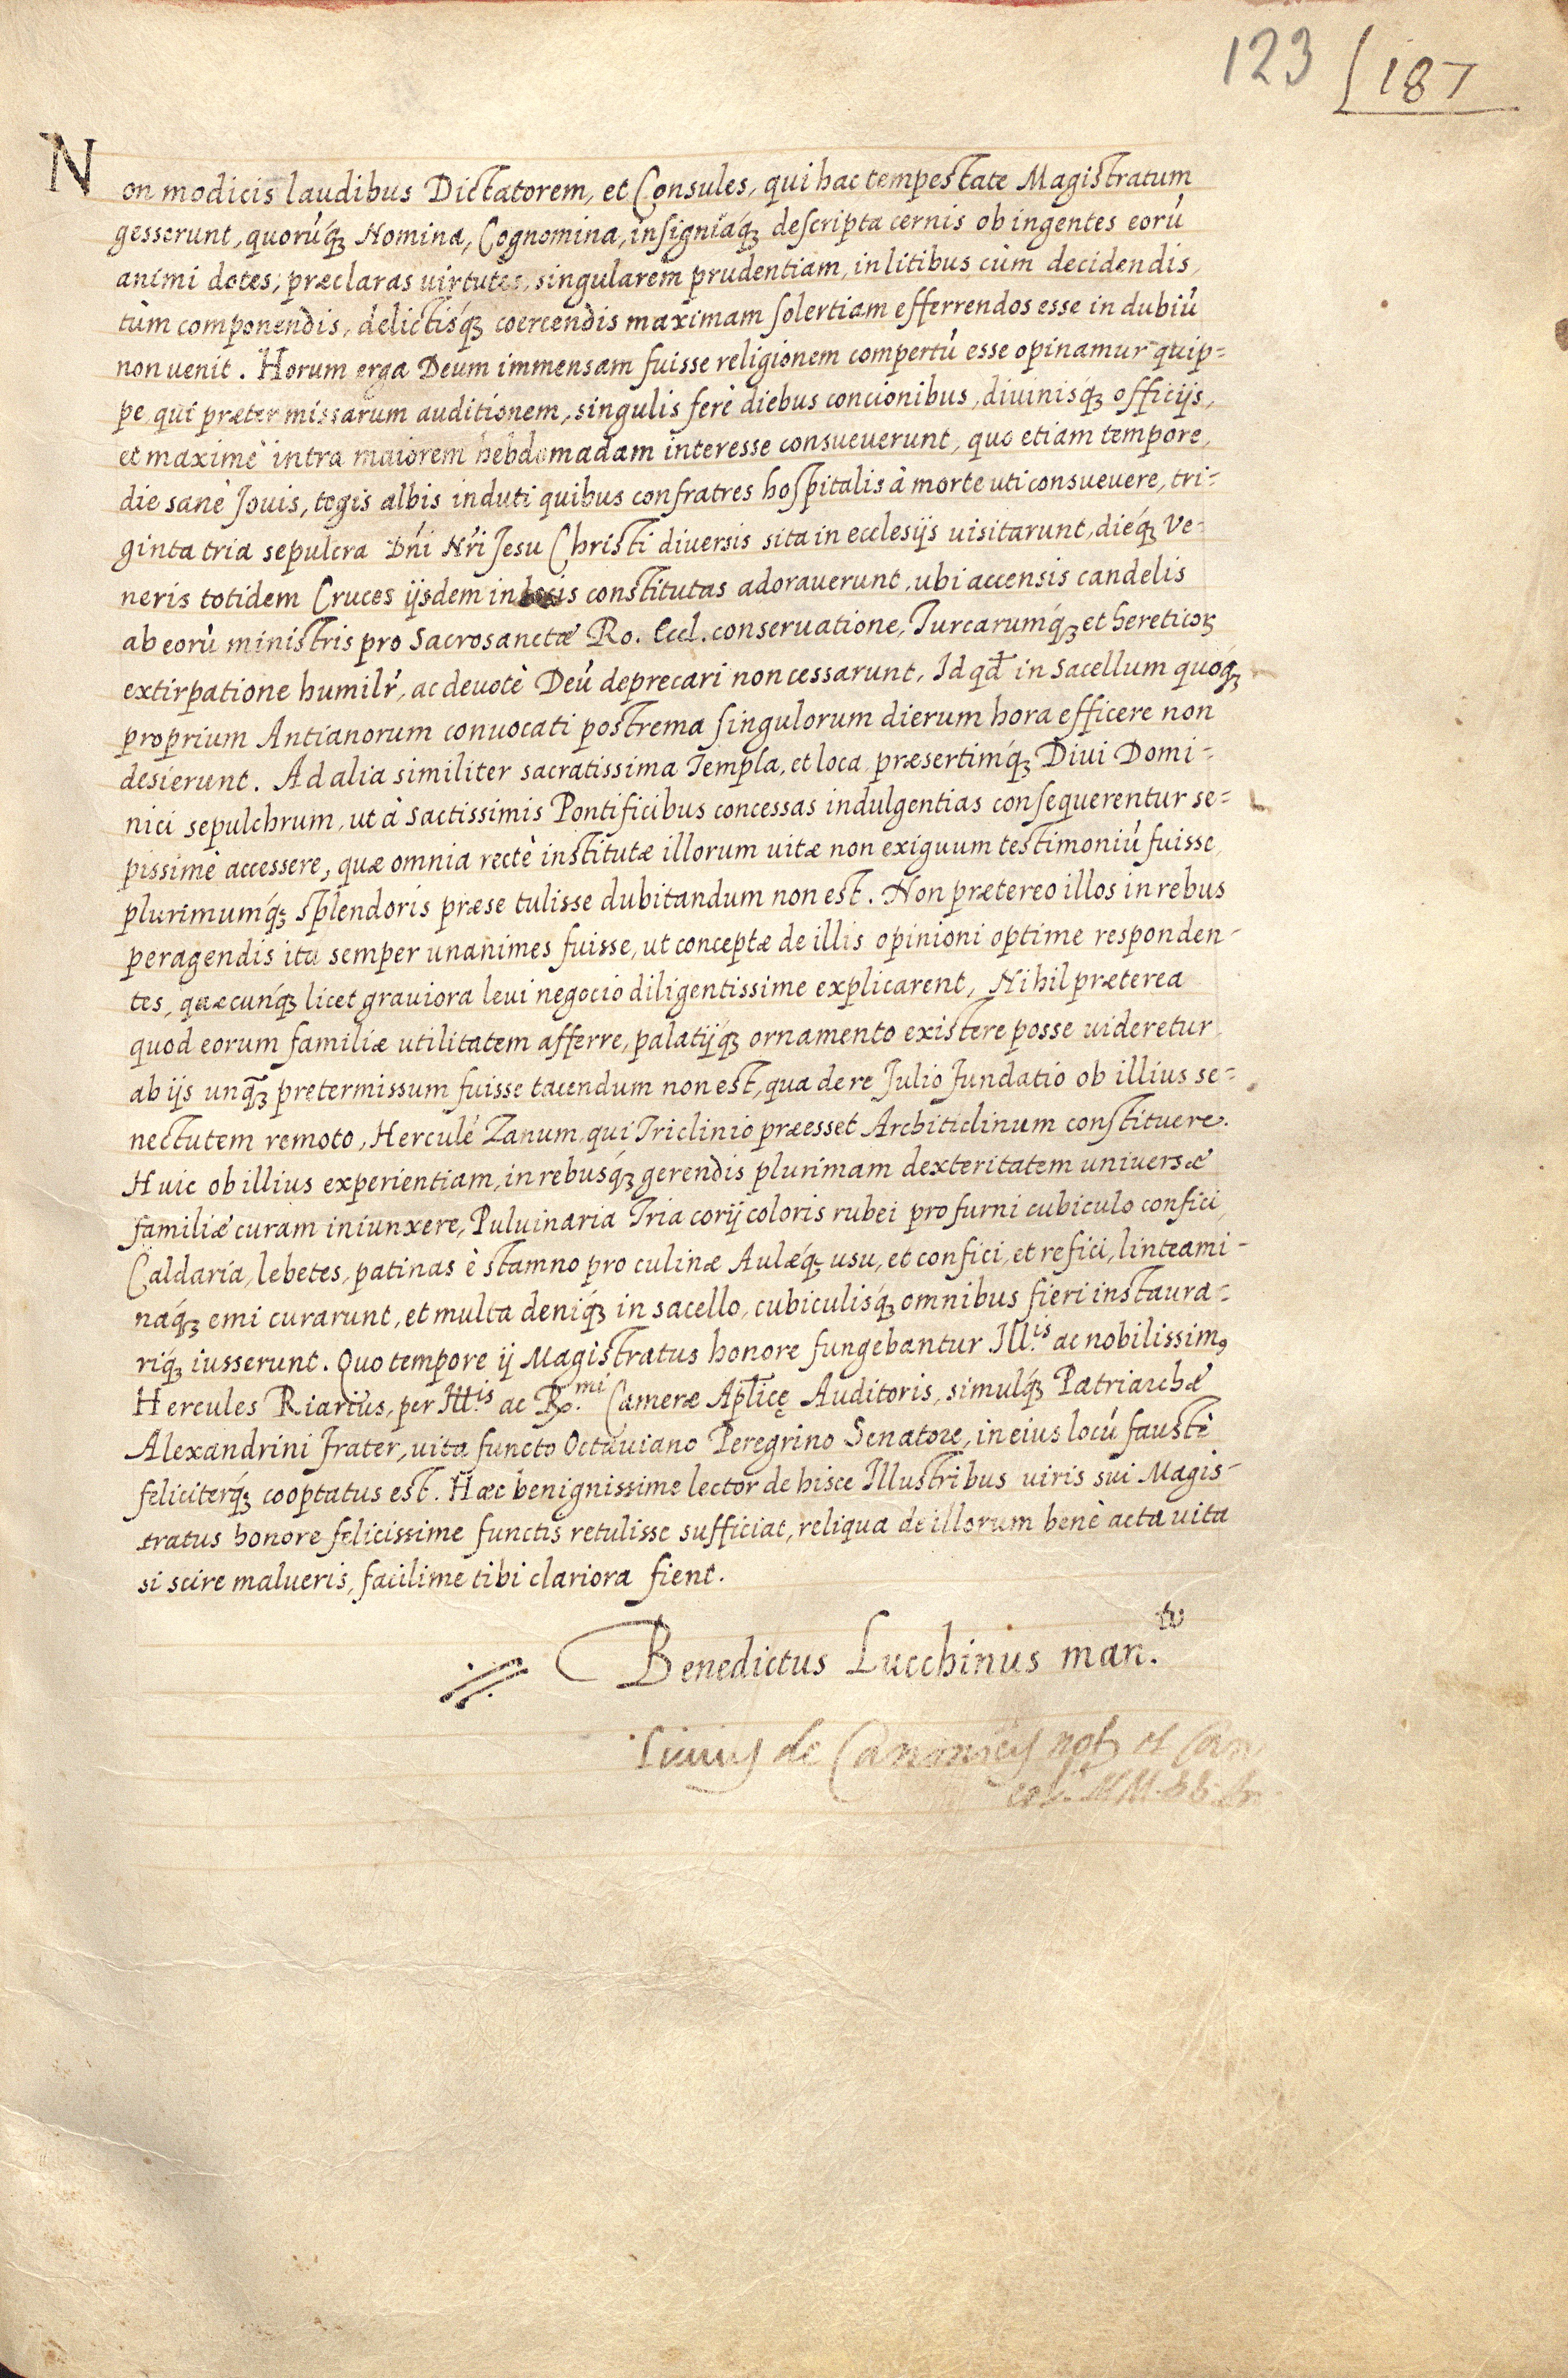 123 187
Non modicis laudibus Dictatorem, et Consules, qui hac tempestate Magistratum
gesserunt, quorúq́ꝫ Nomina, Cognomina, insigniaq́ꝫ descripta cernis ob ingentes eorú
animi dotes, præclaras uirtutes, singularem prudentiam, in litibus cùm decidendis,
tùm componendis, delictisq́ꝫ coercendis maximam solertiam efferrendos esse in dubiú
non uenit. Horum erga Deum immensam fuisse religionem compertú esse opinamur quip=
pe, qui præter missarum auditionem, singulis ferè diebus concionibus, diuinisq́ꝫ officijs,
et maximè intra maiorem hebdomadam interesse consueuerunt, quo etiam tempore,
die sanè Jouis, togis albis induti quibus confratres hospitalis à morte uti consueuere, tri=
ginta tria sepulcra Dńi Nŕi Jesu Christi diversis sita in ecclesijs uisitarunt, dieq́ꝫ Ve=
neris totidem Cruces ijsdem in locis constitutas adorauerunt, ubi accensis candelis
ab eorú ministris pro Sacrosanctæ Ro. Eccl. conseruatione, Turcarumq́ꝫ et hereticoꝝ
extirpatione humilŕ, ac deuotè Deú deprecari non cessarunt, Id qđ in Sacellum quoq́ꝫ
proprium Antianorum conuocati postrema singulorum dierum hora efficere non
desierunt. Ad alia similiter sacratissima Templa, et loca, præsertimq́ꝫ Diui Domi=
nici sepulchrum, ut à Sactissimis Pontificibus concessas indulgentias consequerentur se=
pissimè accessere, quæ omnia rectè institutæ illorum uitæ non exiguum testimoniú fuisse,
plurimumq́ꝫ splendoris præse tulisse dubitandum non est. Non prætereo illos in rebus
peragendis ita semper unanimes fuisse, ut conceptæ de illis opinioni optime responden=
tes, quæcunq́ꝫ licet grauiora leui negocio diligentissime explicarent, Nihil præterea
quod eorum familiæ utilitatem afferre, palatijq́ꝫ ornamento existere posse uideretur
ab ijs unq̃ꝫ pretermissum fuisse tacendum non est, qua de re Julio Jundatio ob illius se=
nectutem remoto, Herculé Zanum, qui Triclinio præesset Architiclinum constituere.
Huic ob illius experientiam, in rebusq́ꝫ gerendis plurimam dexteritatem uniuersæ
familiæ curam iniunxere, Puluinaria Tria corij coloris rubei pro furni cubiculo confici,
Caldaria, lebetes, patinas è stamno pro culinæ Aulæq́ꝫ usu, et confici, et refici, linteami=
naq́ꝫ emi curarunt, et multa deniq́ꝫ in sacello, cubiculisq́ꝫ omnibus fieri instaura=
riq́ꝫ iusserunt. Quo tempore ij Magistratus honore fungebantur Ill.is ac nobilissimꝰ
Hercules Riarius, per Ill.is ac R.mi Cameræ Apl̃icę Auditoris, simulq́ꝫ Patriarchæ
Alexandrini Frater, uita functo Octauiano Peregrino Senatore, in eius locú faustè
feliciterq́ꝫ cooptatus est. Hæc benignissime lector de hisce Illustribus uiris sui Magis=
tratus honore felicissime functis retulisse sufficiat, reliqua de illorum benè acta uita
si scire malueris, facilime tibi clariora fient.
Benedictus Lucchinus man.tu
de Canonicis not et Can